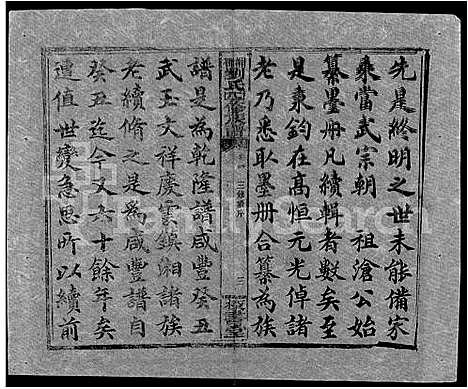 先是終明之世未能備家
乘當武宗朝　祖滄公始
纂墨册凡續輯者數矣至
是秉鈞在高恒元光倬諸
老乃悉取墨册合纂為族
劉氏四修族譜
三
譜是為乾隆譜咸豐癸丑
武玉文祥慶雲鎮湘諸族
老續脩之是爲咸豐譜自
癸丑迄今又六十餘年矣
遭值世變急思所以續前
FamilySearch